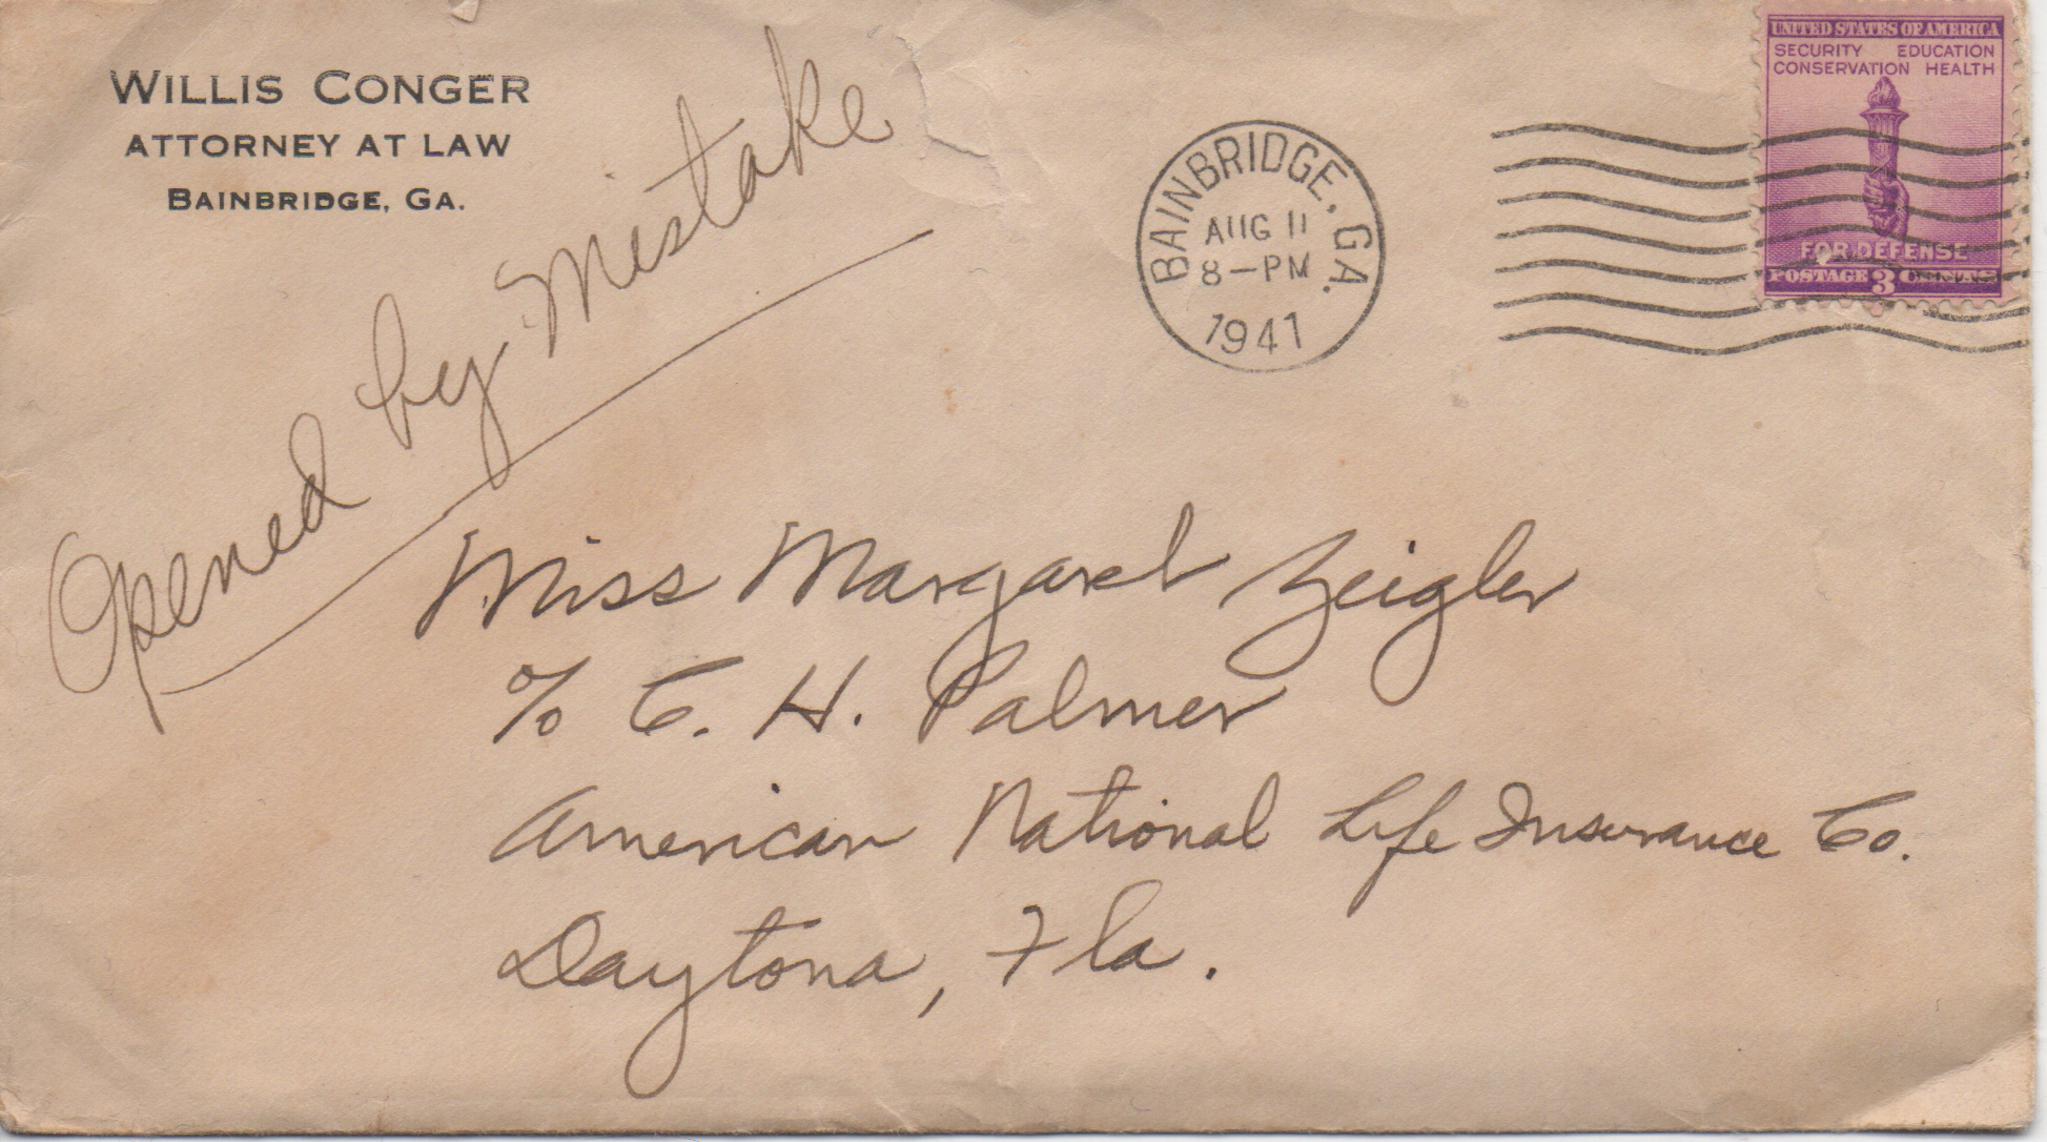 WILLIS CONGER
ATTORNEY AT LAW
BAINBRIDGE, GA.
Opened by Mistake
BAINBRIDGE, GA.
AUG 11
8-PM
1941
UNITED STATES OF AMERICA
SECURITY EDUCATION
CONSERVATION HEALTH
FOR DEFENSE
POSTAGE 3 CENTS
Miss Margaret Zeigler
% C. H. Palmer
American National Life Insurance Co.
Daytona, Fla.